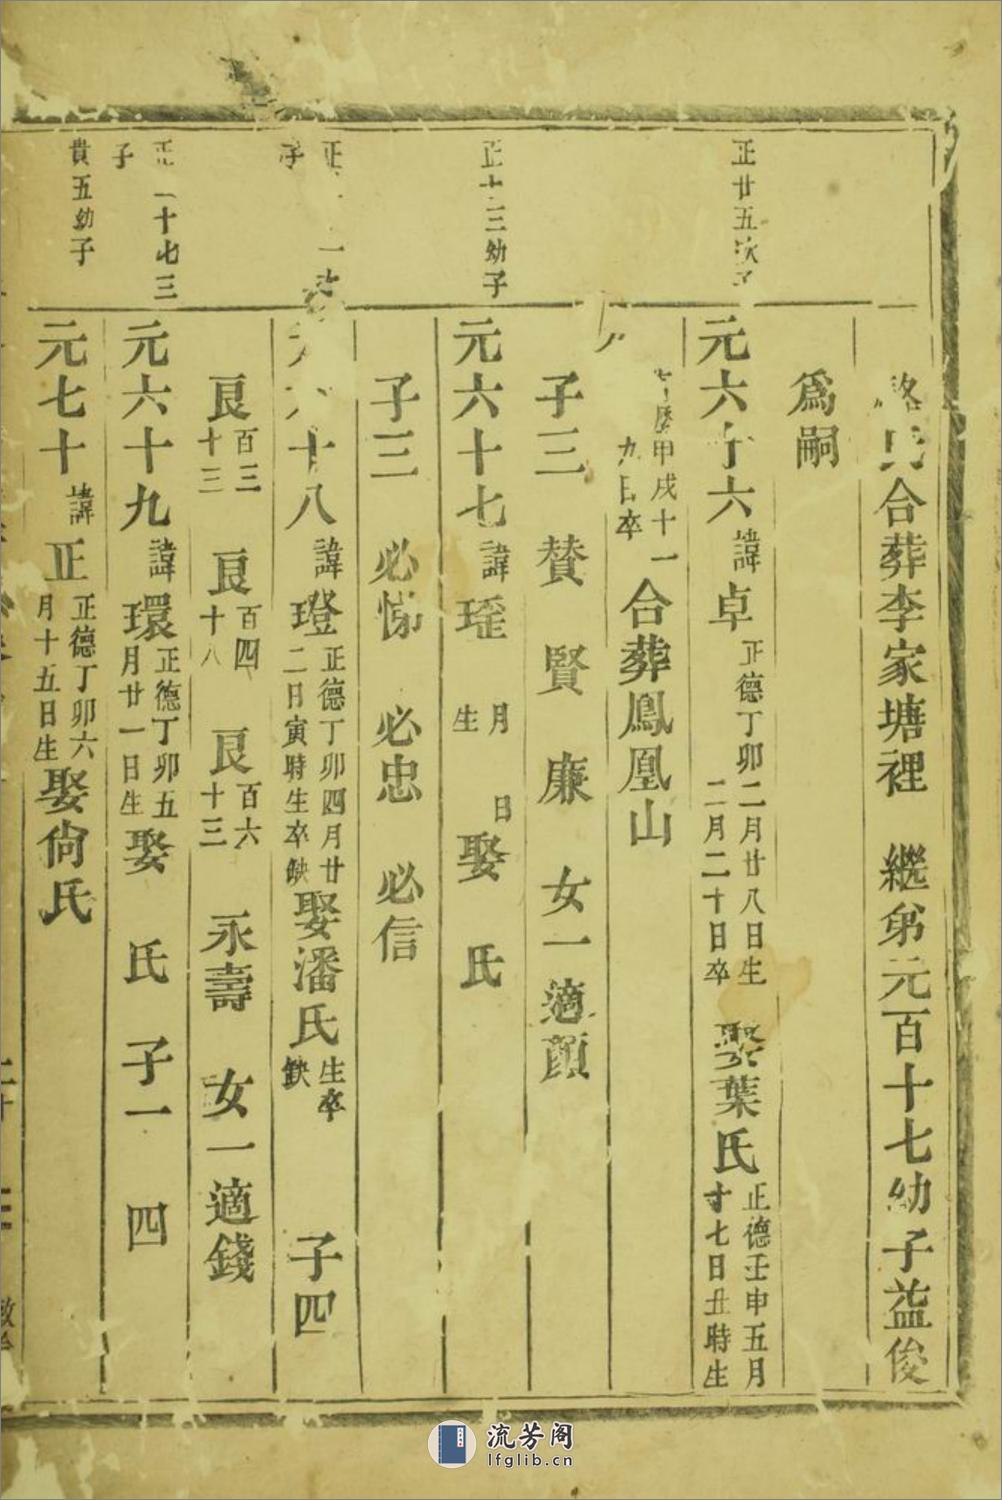 氏合葬李家塘裡 繼弟元百十七幼子益俊
爲嗣
正廿五次子
元六十六 諱卓 正德丁卯二月廿八日生 二月二十日卒 娶葉氏 正德壬申五月 十七日丑時生
歷甲戌十一 九日卒 合葬鳳凰山
子三 贊 賢 廉 女一適顔
正十三幼子
元六十七 諱瑾 月 日 生 娶 氏
子三 必悌 必忠 必信
正 一 子
十八 諱璒 正德丁卯四月廿 二日寅時生卒缺 娶潘氏 生卒 缺 子四
良 百三 十三 良 百四 十八 良 百六 十三 永壽 女一適錢
正 二十七三 子
元六十九 諱環 正德丁卯五 月廿一日生 娶 氏 子一 四
貴五幼子
元七十 諱正 正德丁卯六 月十五日生 娶尙氏
流芳阁
lfglib.cn